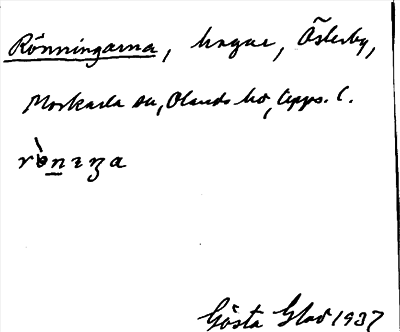 Rönningarna, hagar, Österby,
Morkarla sn, Olands hd, Upps. l.
rö̀nıŋa
Gösta Glad 1937